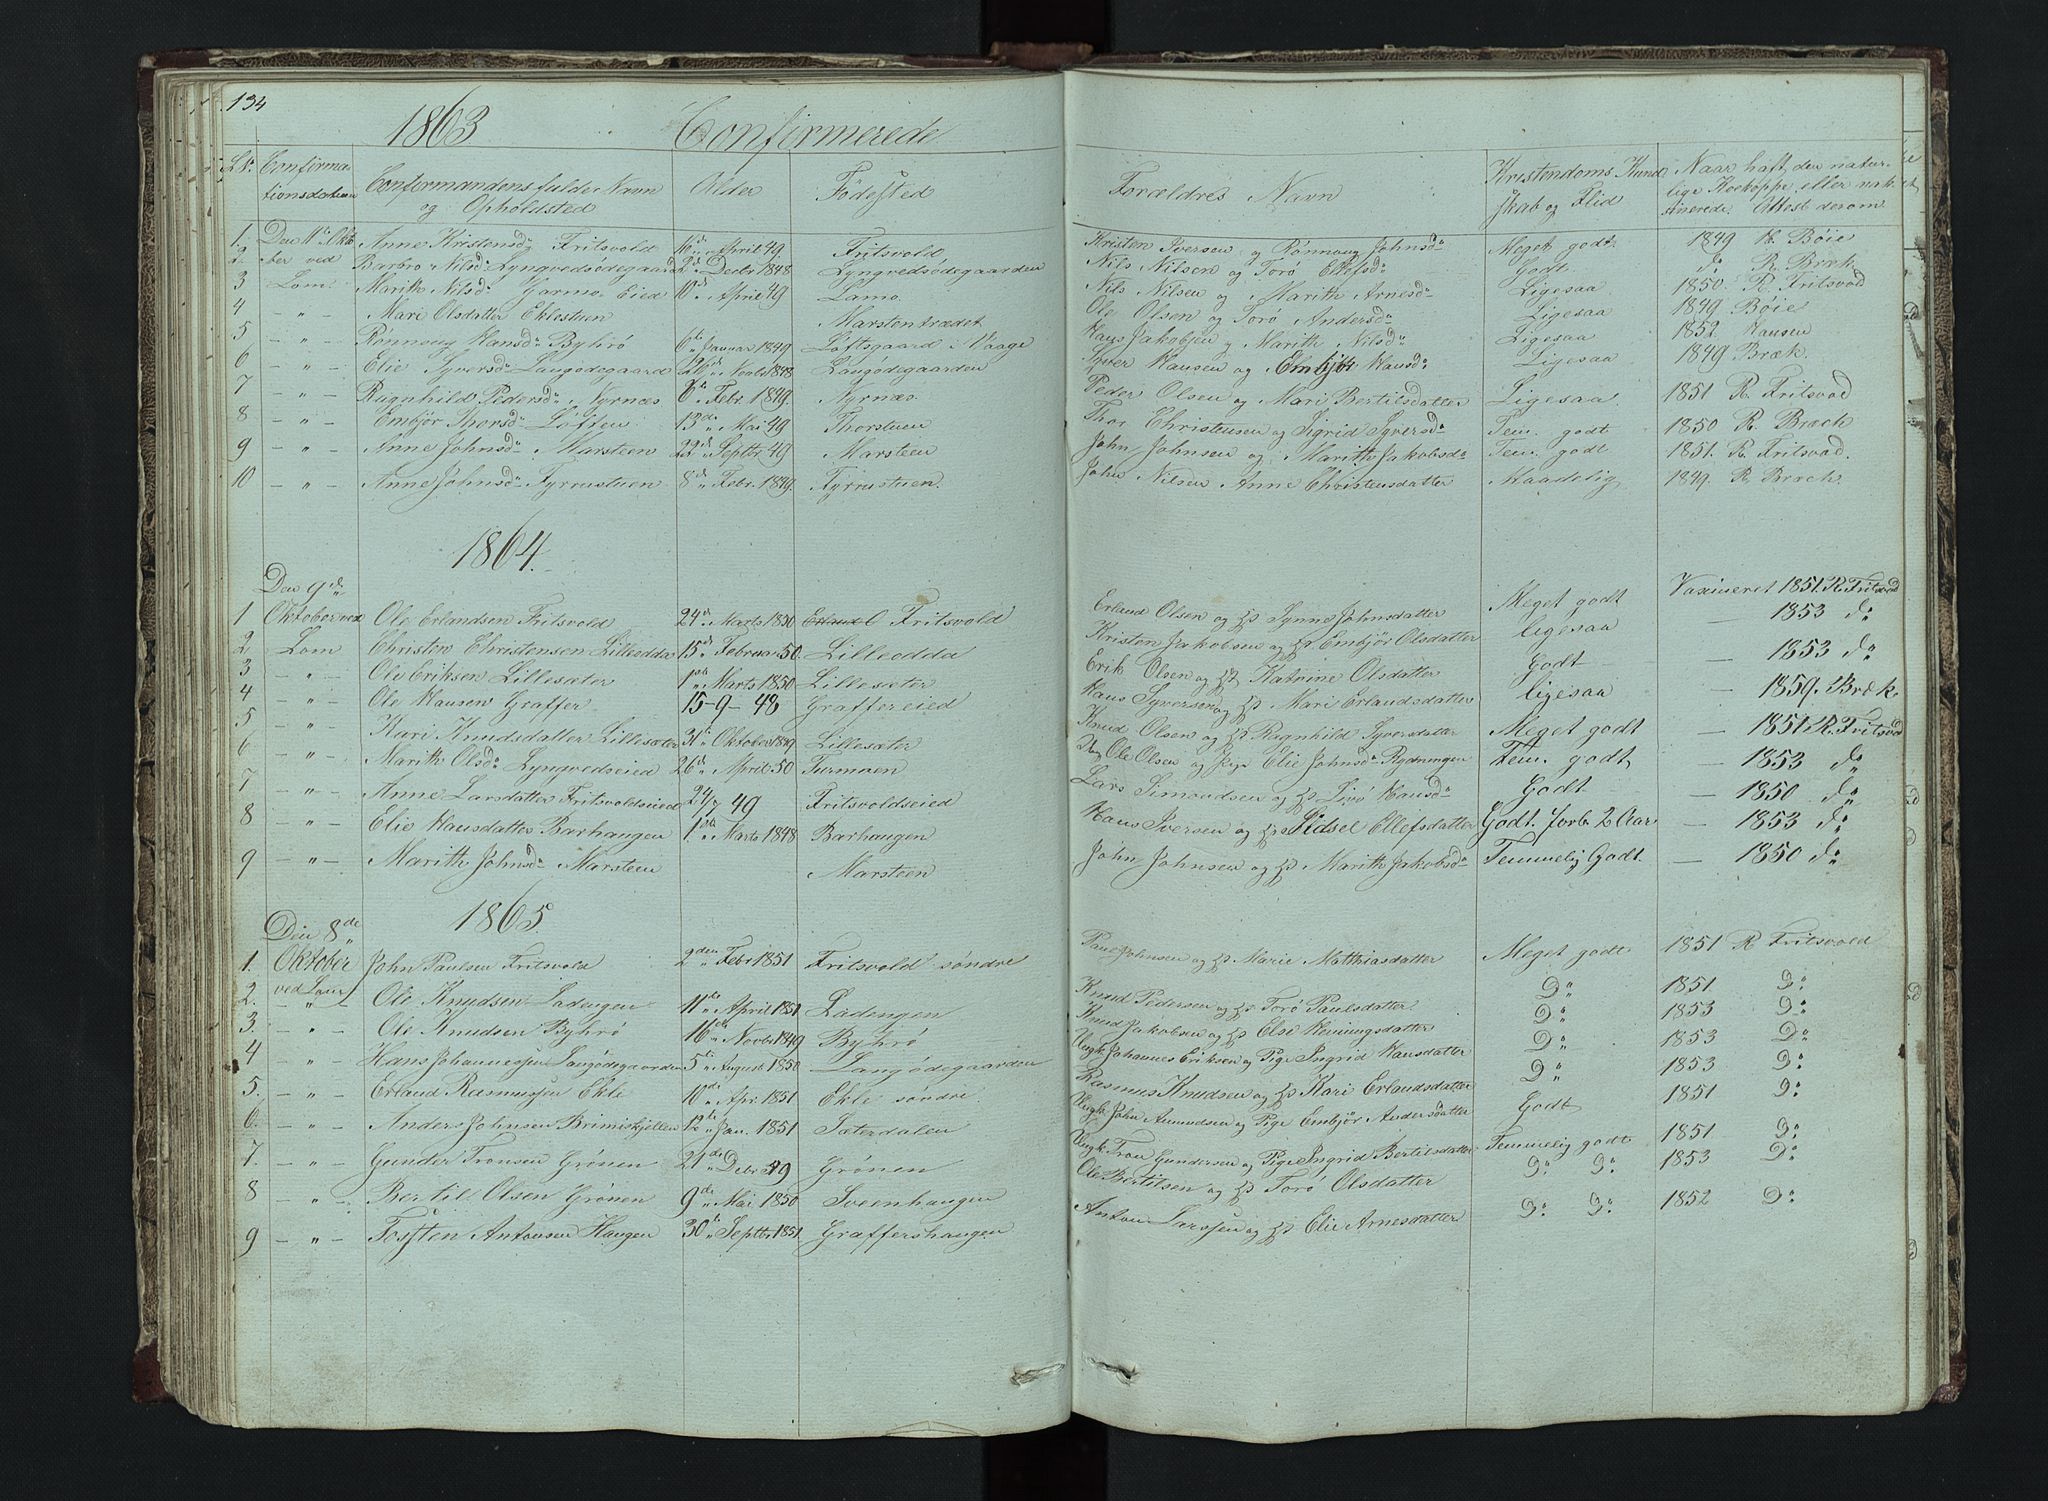 134
1863 Confirmerede
L. No. Confirma- Confirmandens fulde Navn Alder Födested Forældres Navn Kristendoms Kund Naar haft den natur-
tionsdatum og Opholdsted skab og Flid lige Kokopper eller vak
sinerede. Attest derom
1. Den 11te Okto Anne Kristensdr Fritsvold 16de April 49 Fritsvold Kristen Iversen og Rönnoug Johnsdr Meget godt 1849 Böie
2. ber ved Barbro Nilsdr Lyngvedsödegaard 2den Decbr 1848 Lyngvedsödegaarden Nils Nilsen og Torö Ellefsdr Godt. do R. Bræk
3 Lom. Marith Nilsdr Garmo Eied 10de April 49 Lamo. Nils Nilsen og Marith Arnesdr Ligesaa 1850 R. Fritsvod
4 - " - Mari Olsdatter Eklestuen Marstentrædet Ole Olsen og Torö Andersdr Ligesaa 1849 Böie
5 - " - Rönnoug Hansdr Byhrö 6te Januar 1849 Löftsgaard i Vaage Hans Jakobsen og Marith Nilsdr Ligesaa 1852 Hansen
6 - " - Elie Syversdr Langödegaard 26de Novbr 1848 Langödegaarden Syver Hansen og Embjör Hansdr Ligesaa 1849 Bræk.
7 - " - Ragnhild Pedersdr Nyrnæs 6te Febr 1849. Nyrnæs Peder Olsen og Mari Bertilsdatter Ligesaa. 1851 R. Fritsvod
8 - " - Embjör Thorsdr Löften. 13de Mai 49 Thorstuen Thor Christensen og Sigrid Syversdr Tem. godt 1850 R. Bræck
9 - " - Anne Johnsdr Marsteen 22de Septbr 49 Marsteen John Johnsen og Marith Jakobsdr Tem. godt 1851. R. Fritsvod.
10 - " - Anne Johnsdr Tyrrustuen 8de Febr. 1849. Tyrrustuen. John Nilsen Anne Christensdatter Maadelig 1849. R Bræck.
1864.
Den 9de
1 Oktober ved Ole Erlandsen Fritsvold 24de Marts 1850 Fritsvold Erland Olsen og Hst Synne Johnsdatter Meget godt Vaxineret 1851. R. Fritsvod
2 Lom Christen Christensen Lilleodda 15de Februar 50. Lilleodda Kristen Jakobsen og Hst Embjör Olsdatter ligesaa - 1853 do
3 - " - Ole Eriksen Lillesæter 1ste Marts 1850 Lillesæter Erik Olsen og Hst Katrine Olsdatter Godt - 1853 do
4 - " - Ole Hansen Graffer. 15-9-48 Graffereied Hans Syversen og Hst Mari Erlandsdatter ligesaa - 1859. Bræk.
5 - " - Kari Knudsdatter Lillesæter 31te Oktober 1849 Lillesæter Knud Olsen og Hst Ragnhild Syversdatter Meget godt - 1851 R. Fritsvod
6 - " - Marith Olsdr Lyngvedseied 26de April 50 Turmoen Ole Olsen og Pige Elie Johnsdr Rydningen Tem. godt - 1853 do
7 - " - Anne Larsdatter Fritsvoldseied 24/7 49 Fritsvoldseied Lars Simondsen og Hst Sirö Hansdr Godt - 1850 do
8 - " - Elie Hansdatter Barhaugen 1ste Marts 1848 Barhaugen Hans Iversen og Hst Sidsel Ellefsdatter Godt. forb 2 Aar - 1853 do
9 - " - Marith Johnsdr Marsteen Marsteen John Johnsen og Hst Marith Jakobsdr Temmelig Godt - 1850 do
1865
Den 8de
1. Oktober John Paulsen Fritsvold 2den Febr 1851 Fritsvold söndre Paul Johnsen og Hst Marie Matthiasdatter Meget godt 1851 R Fritsvold
2. ved Lom Ole Knudsen Ladengen 11te April 1851 Ladengen Knud Pedersen og Hst Torö Paulsdatter Do 1851 Do
3. - " - Ole Knudsen Byhrö 16de Novbr 1849 Byhrö Knud Jakobsen og Hst Else Henningsdatter Do 1853 Do
4 - " - Hans Johannesen Langödegaarden 5te August 1850 Langödegaarden Ungk. Johannes Eriksen og Pige Ingrid Hansdatter Do 1853 Do
5. - " - Erland Rasmussen Ekle 10de Apr 1851 Ekle söndre Rasmus Knudsen og Hst Kari Erlandsdatter Do 1853 Do
6. - " - Anders Johnsen Brimiskjellen 12te Jan. 1851 Sæterdalen Ungk. John Amundsen og Pige Embjör Andersdatter Godt 1851 Do
7. - " - Gunder Tronsen Grönen 21de Debr 49 Grönen Ungk. Tron Gundersen og Pige Ingrid Bertilsdatter Temmelig godt 1851 Do
8 - " - Bertil Olsen Grönen 9de Mai 1850 Sveenhaugen Ole Bertilsen og Hst Torö Olsdatter Do Do 1853 Do
9 - " - Tosten Antonsen Haugen 30te Septbr 1851 Graffershaugen Anton Larssen og Hst Elie Arnesdatter Do Do 1852 Do